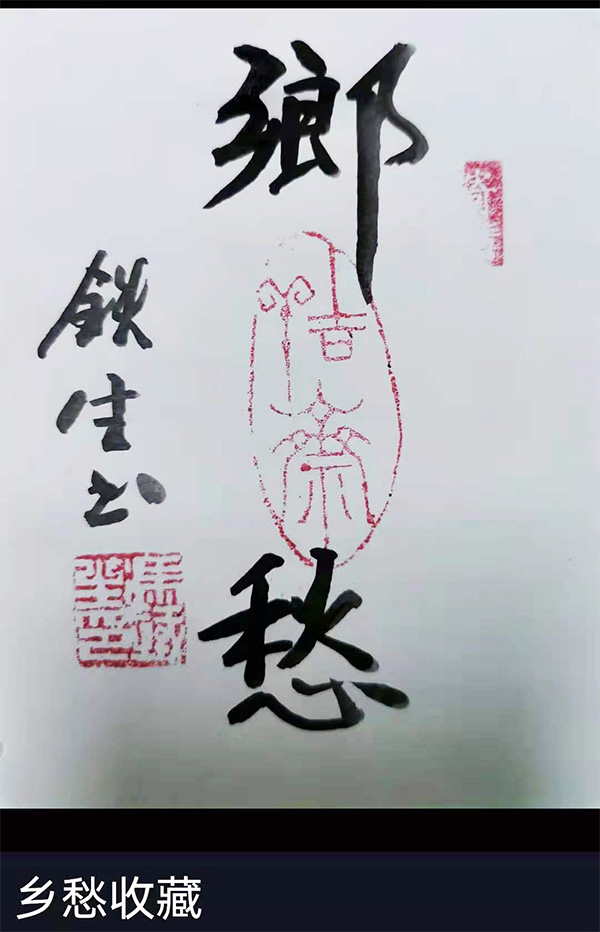 鄉愁
鐵生书
乡愁收藏